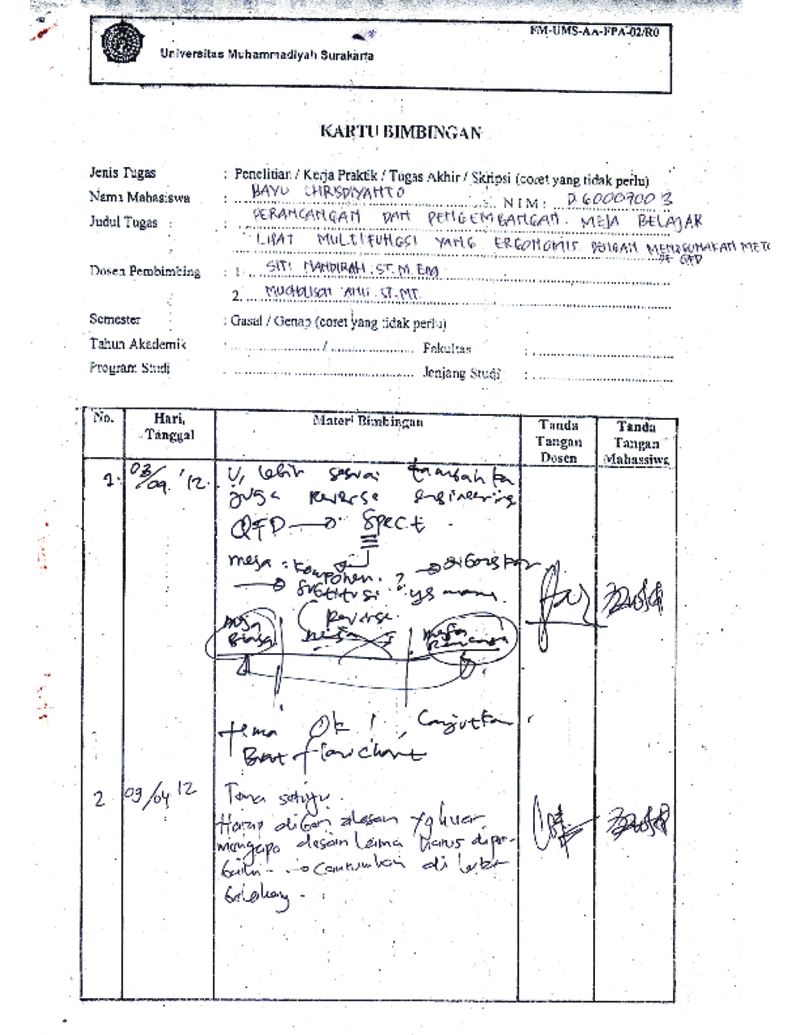 FM-UMS-AA-FPA-02/R0
Universitas Muhammadiyah Surakarta
KARTU BIMBINGAN
Jenis Tugas : Penelitian / Kerja Praktik / Tugas Akhir / Skripsi (coret yang tidak perlu)
Nama Mahasiswa : BAYU CHRISDIYANTO NIM : D 600070013
Judul Tugas : PERANCANGAN DAN PENGEMBANGAN MEJA BELAJAR
LIPAT MULTIFUNGSI YANG ERGONOMIS DENGAN MENGGUNAKAN METO
DE QFD
Dosen Pembimbing : 1. SITI NANDIROH. ST. M. Eng
2. ST. MT.
Semester : Gasal / Genap (coret yang tidak perlu)
Tahun Akademik : / Fakultas :
Program Studi : Jenjang Studi :
No. Hari, Tanggal Materi Bimbingan Tanda Tangan Dosen Tanda Tangan Mahasiswa
1. 03/04 '12. U, lebih sesuai tambahka
juga reverse engineering
QFD → Spect.
meja : komponen. ?
→ substitusi yg mana.
Reverse
meja biasa meja meja
tema Ok ! , Lanjutka
Buat flowchart
2 09/04 12 Tema setuju.
Harap diberi alasan yg kuat
mengapa desain lama harus diper-
baiki → Cantumkan di latar
belakang.